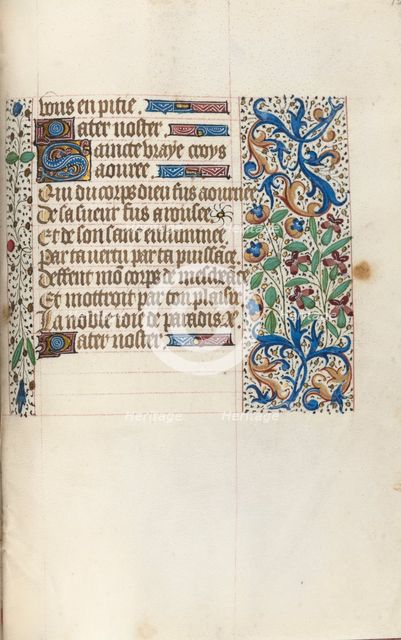 vous en pitie
Pater noster
Saincte vraye croys
aouree
Qui du corps dieu fus aournee
De sa sueur fus arousee
Et de son sanc enluminee
Par ta vertu par ta puissāce
Deffent mō corps de meschāce
Et mottroit par ton plaisir
La noble ioie de paradis Ae
Pater noster
Heritage
Heritage
Heritage